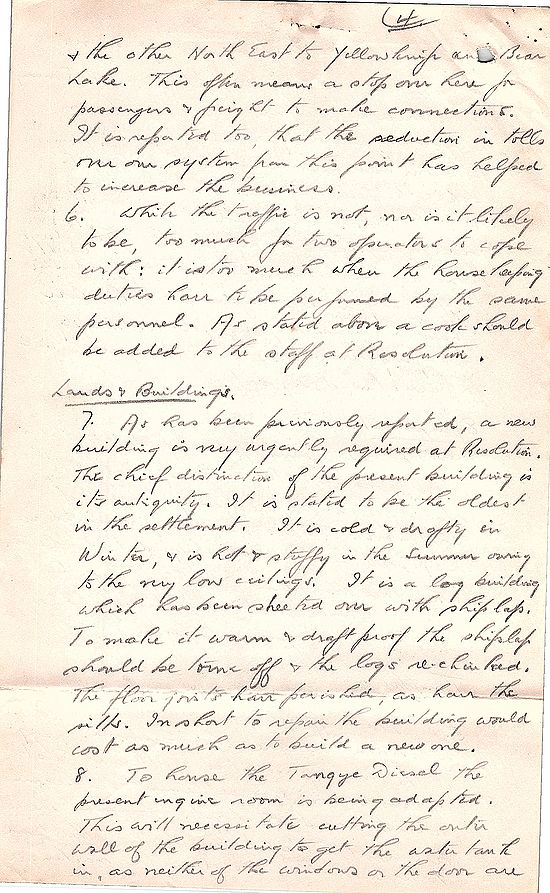 4
& the other North East to Yellowknife and Bear
Lake. This often means a stop over here for
passengers & freight to make connections.
It is reported too, that the reduction in tolls
over our system from this point has helped
to increase the business.
6. While the traffic is not, nor is it likely
to be, too much for two operators to cope
with: it is too much when the housekeeping
duties have to be performed by the same
personnel. As stated above a cook should
be added to the staff at Resolution.
Lands & Buildings.
7. As has been previously reported, a new
building is very urgently required at Resolution.
The chief distinction of the present building is
its antiquity. It is stated to be the oldest
in the settlement. It is cold & drafty in
Winter, & is hot & stuffy in the Summer owing
to the very low ceilings. It is a log building
which has been sheeted over with shiplap.
To make it warm & draft proof the shiplap
should be torne off & the logs re-chinked.
The floor joists have perished, as have the
sills. In short to repair the building would
cost as much as to build a new one.
8. To house the Tangye Diesel the
present engine room is being adapted.
This will necessitate cutting the outer
wall of the building to get the water tank
in, as neither of the windows or the door are